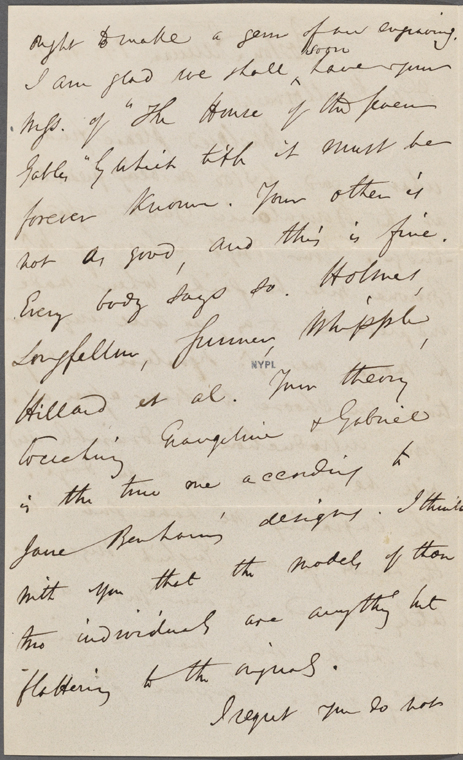 ought to make a gem of an engraving.
I am glad we shall soon have your
Mss. of "The House of the Seven
Gables" by which title it must be
forever known. Your other is
not as good, and this is fine.
Every body says so. Holmes,
Longfellow, Sumner, Whipple,
NYPL
Hillard et al. Your theory
touching Evangeline & Gabriel
is the true one according to
Jane Benham's designs. I think
with you that the models of those
two individuals are anything but
flattering to the originals.
I regret you do not